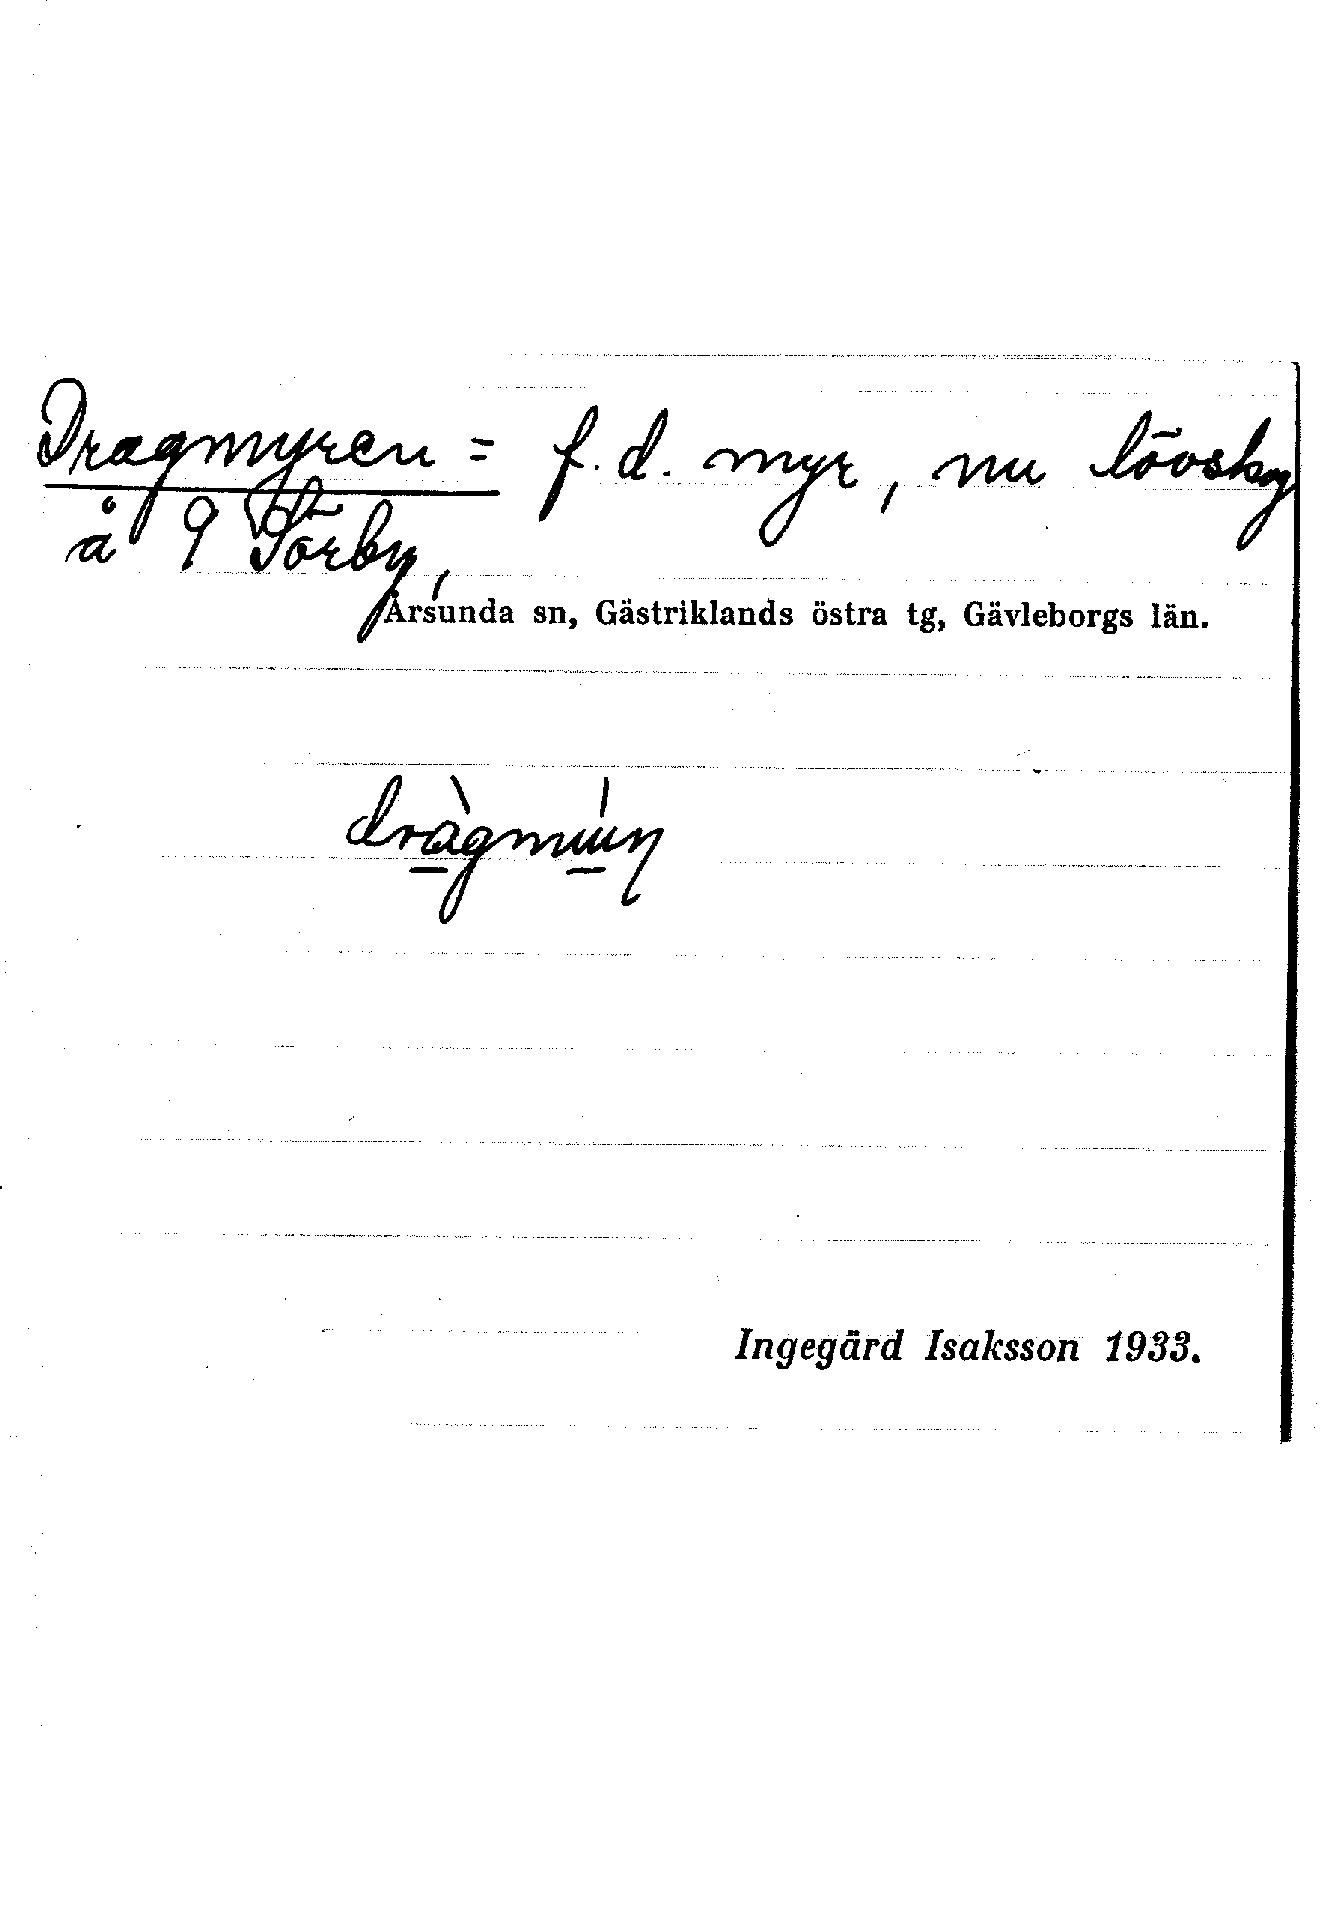 Dragmyren = f.d. myr, nu lövskog
å 9 Sörby,
Årsunda sn, Gästriklands östra tg, Gävleborgs län.
Ingegärd Isaksson 1933.